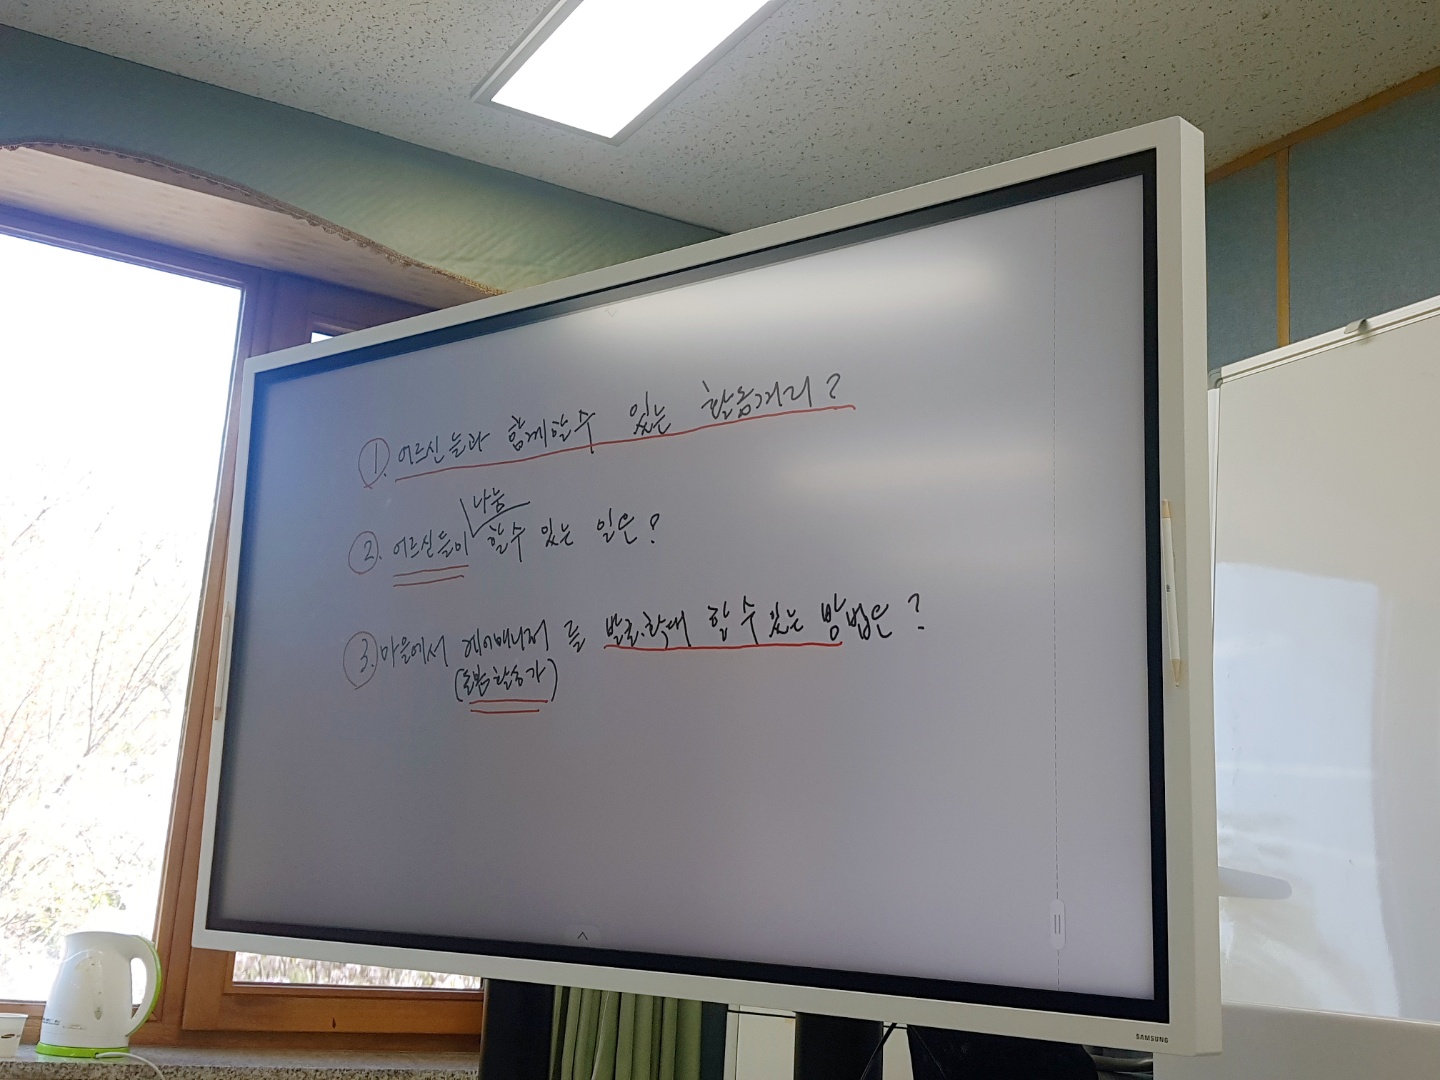 ①. 어르신들과 함께할수 있는 활동거리?
나눔
②. 어르신들이 할수 있는 일은?
③. 마을에서 케어매니저를 발굴.확대 할 수 있는 방법은?
(돌봄활동가)
SAMSUNG